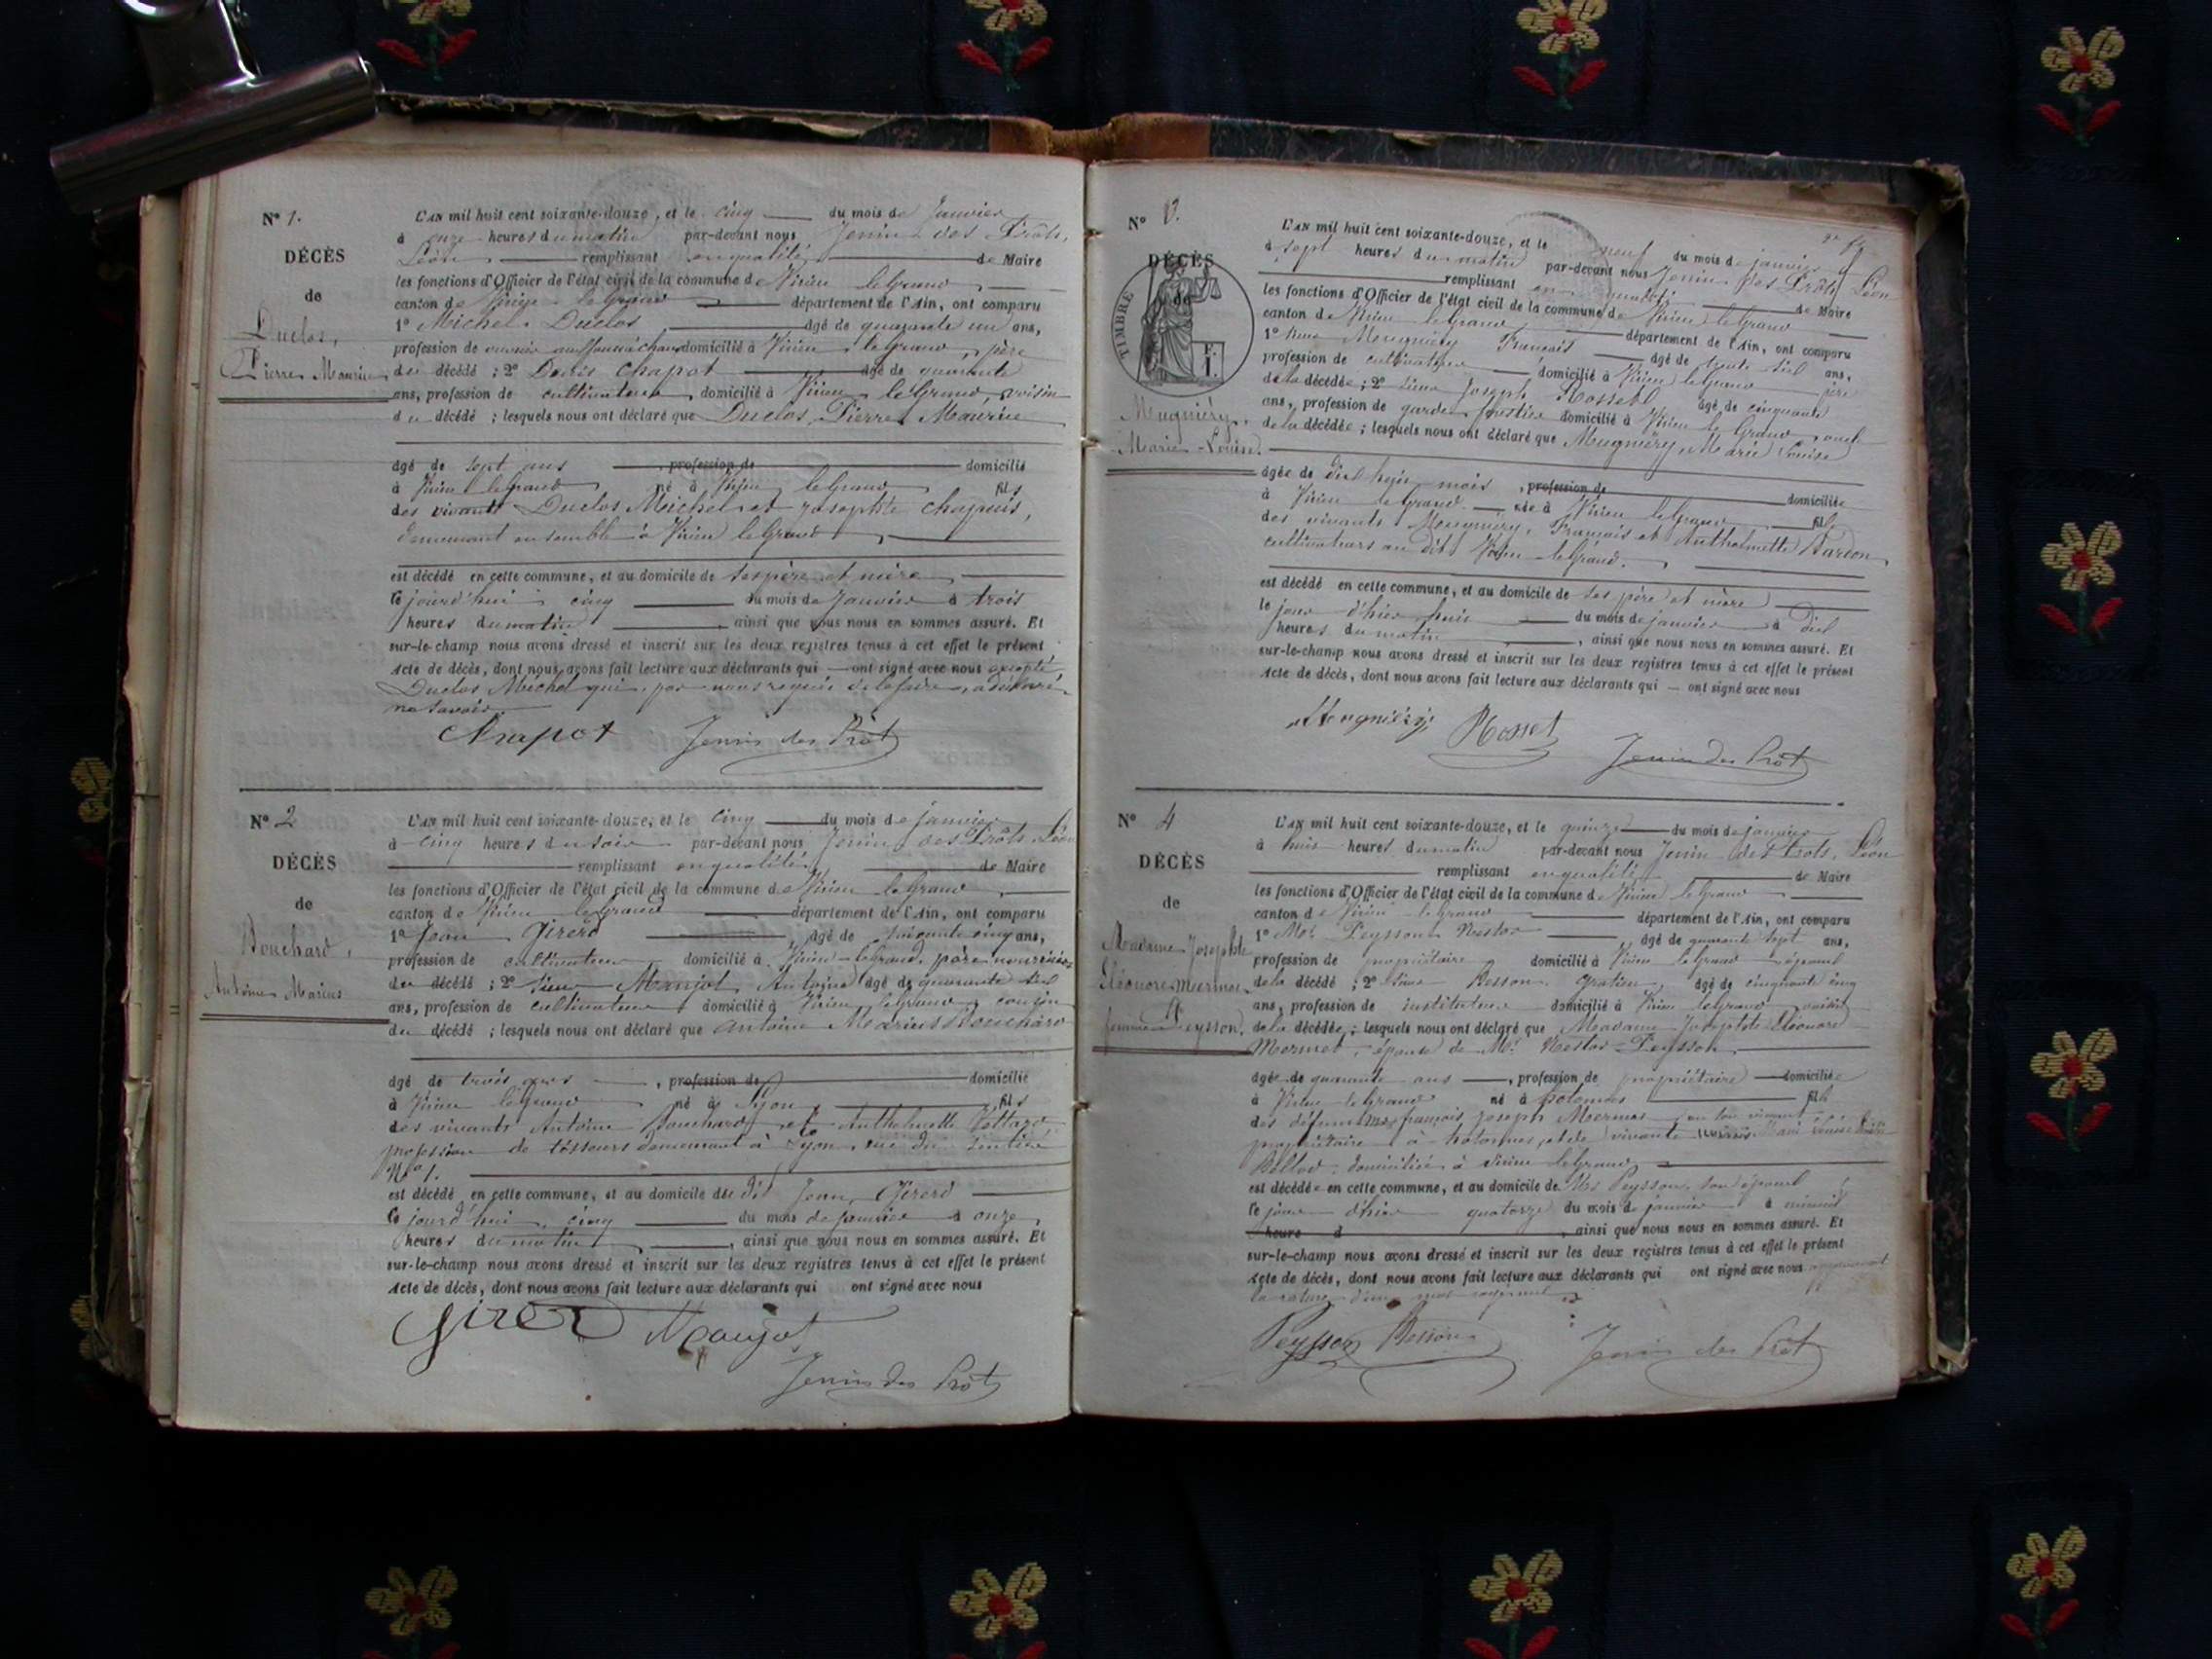 N° 1.
DÉCÈS
de
Duclos,
Pierre Maurice
L'AN mil huit cent soixante-douze, et le cinq du mois de Janvier
à onze heures du matin par-devant nous Jenin des Prôts,
Léon remplissant en qualité de Maire
les fonctions d'Officier de l'état civil de la commune de Virieu le Grand
canton de Virieu le Grand département de l'Ain, ont comparu
1° Michel Duclos âgé de quarante un ans,
profession de ouvrier domicilié à Virieu le Grand, père
du décédé ; 2° Denis Chapot âgé de quarante
ans, profession de cultivateur, domicilié à Virieu le Grand, voisin
du décédé ; lesquels nous ont déclaré que Duclos, Pierre Maurice
âgé de sept ans , profession de domicilié
à Virieu le Grand né à Virieu le Grand fils
des vivants Duclos Michel et Josephte Chapuis,
demeurant ensemble à Virieu le Grand
est décédé en cette commune, et au domicile de ses père et mère
le jourd'hui cinq du mois de Janvier à trois
heures du matin , ainsi que nous nous en sommes assuré. Et
sur-le-champ nous avons dressé et inscrit sur les deux registres tenus à cet effet le présent
acte de décès, dont nous avons fait lecture aux déclarants qui ont signé avec nous excepté
Duclos Michel qui, par nous requis de le faire, a déclaré
ne savoir.
Chapot Jenin des Prôts
N° 2
DÉCÈS
de
Bouchard,
Antoine Marius
L'AN mil huit cent soixante-douze, et le cinq du mois de janvier
à cinq heures du soir par-devant nous Jenin des Prôts, Léon
remplissant en qualité de Maire
les fonctions d'Officier de l'état civil de la commune de Virieu le Grand
canton de Virieu le Grand département de l'Ain, ont comparu
1° Jean Girerd âgé de soixante cinq ans,
profession de cultivateur domicilié à Virieu le Grand, père nourricier
du décédé ; 2° Sieur Manjot Antoine âgé de quarante
ans, profession de cultivateur domicilié à Virieu le Grand, cousin
du décédé ; lesquels nous ont déclaré que Antoine Marius Bouchard
âgé de trois ans , profession de domicilié
à Virieu le Grand né à Lyon fils
des vivants Antoine Bouchard et Anthelmette
profession de tisseurs demeurant à Lyon, rue du
N° 1.
est décédé en cette commune, et au domicile du dit Jean Girerd
le jourd'hui, cinq du mois de janvier à onze
heures du matin , ainsi que nous nous en sommes assuré. Et
sur-le-champ nous avons dressé et inscrit sur les deux registres tenus à cet effet le présent
acte de décès, dont nous avons fait lecture aux déclarants qui ont signé avec nous
Girerd Manjot
Jenin des Prôts
N° 3.
DÉCÈS
de
TIMBRE
Mugniéry,
Marie-Louise.
L'AN mil huit cent soixante-douze, et le neuf du mois de janvier
à sept heures du matin par-devant nous Jenin des Prôts, Léon
remplissant en qualité de Maire
les fonctions d'Officier de l'état civil de la commune de Virieu le Grand
canton de Virieu le Grand département de l'Ain, ont comparu
1° Sieur Mugniéry François âgé de trente ans,
profession de cultivateur domicilié à Virieu le Grand père
de la décédée ; 2° Sieur Joseph Rosset âgé de cinquante
ans, profession de garde domicilié à Virieu le Grand, oncle
de la décédée ; lesquels nous ont déclaré que Mugniéry, Marie Louise
âgée de dix huit mois , profession de domiciliée
à Virieu le Grand née à Virieu le Grand fille
des vivants Mugniéry, François et Anthelmette Bardon
cultivateurs au dit Virieu le Grand.
est décédé en cette commune, et au domicile de ses père et mère
le jour d'hier huit du mois de janvier à dix
heures du matin , ainsi que nous nous en sommes assuré. Et
sur-le-champ nous avons dressé et inscrit sur les deux registres tenus à cet effet le présent
acte de décès, dont nous avons fait lecture aux déclarants qui ont signé avec nous
Mugniéry Rosset
Jenin des Prôts
N° 4
DÉCÈS
de
Madame Josephte
Eléonore Mermet
femme Peysson.
L'AN mil huit cent soixante-douze, et le quinze du mois de janvier
à huit heures du matin par-devant nous Jenin des Prôts, Léon
remplissant en qualité de Maire
les fonctions d'Officier de l'état civil de la commune de Virieu le Grand
canton de Virieu le Grand département de l'Ain, ont comparu
1° Mr Peysson Nestor âgé de quarante sept ans,
profession de propriétaire domicilié à Virieu le Grand époux
de la décédé ; 2° Sieur Besson âgé de cinquante cinq
ans, profession de instituteur domicilié à Virieu le Grand, voisin
de la décédée, ; lesquels nous ont déclaré que Madame Josephte Eléonore
Mermet, épouse de Mr Nestor Peysson
âgée de quarante ans , profession de propriétaire domiciliée
à Virieu le Grand né à hotonnes fille
des défunt françois Joseph Mermet en son vivant
propriétaire à hotonnes, et de vivante
domiciliée à Virieu le Grand
est décédée en cette commune, et au domicile de Mr Peysson, son époux
le jour d'hier quatorze du mois de janvier à minuit
heure d , ainsi que nous nous en sommes assuré. Et
sur-le-champ nous avons dressé et inscrit sur les deux registres tenus à cet effet le présent
acte de décès, dont nous avons fait lecture aux déclarants qui ont signé avec nous approuvant
la rature d'un mot
Peysson Besson Jenin des Prôts